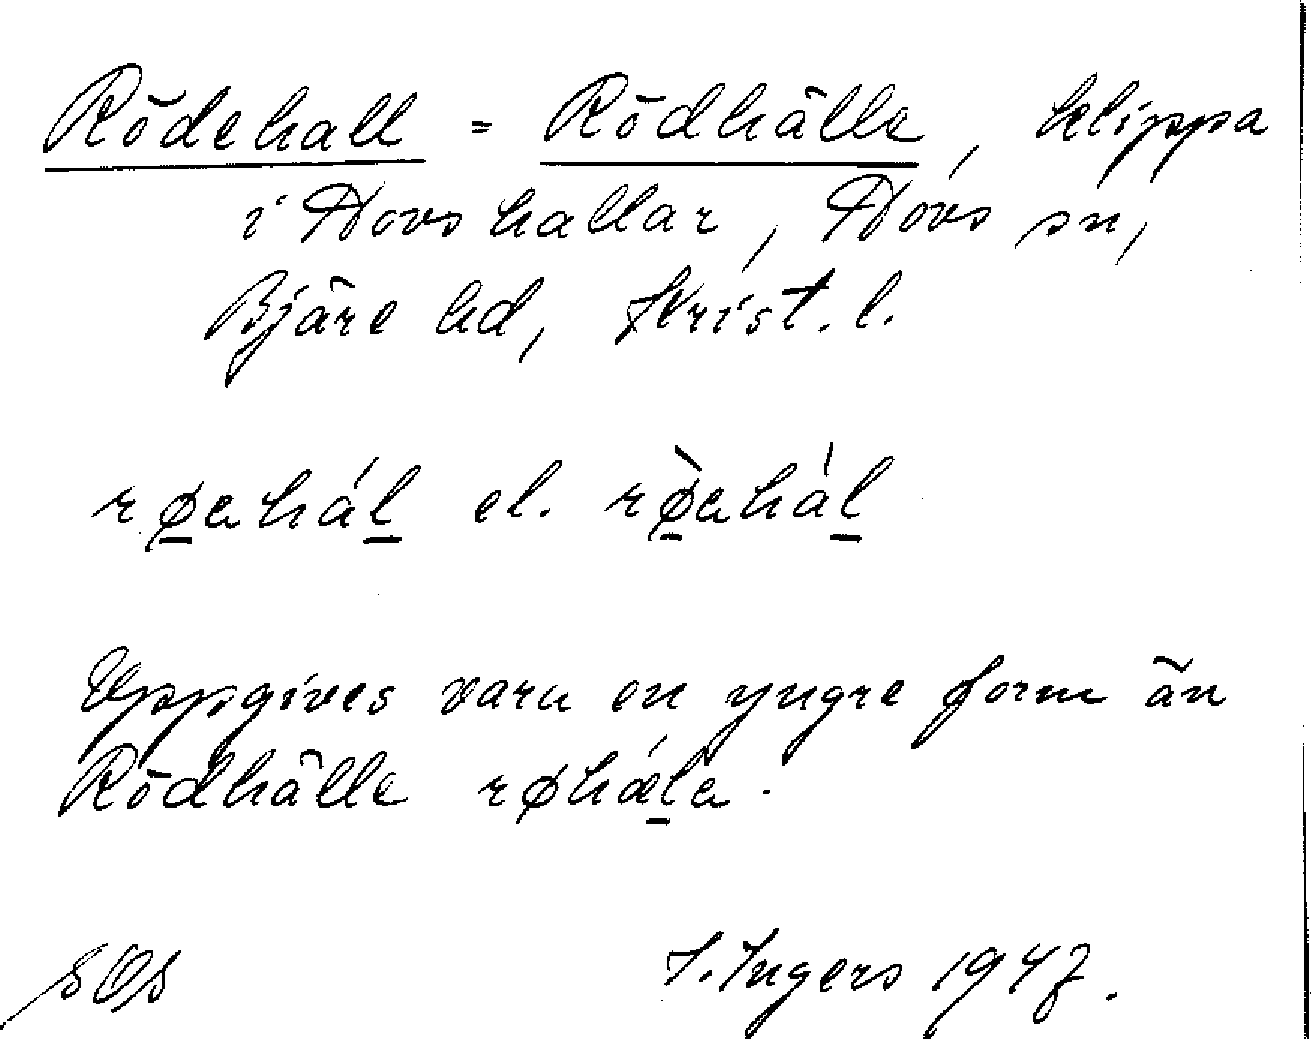 Rödehall = Rödhälle, klippa
i Hovs hallar, Hovs sn,
Bjäre hd, Krist. l.
rø̲ahál̲ el. rø̲̀ahàl̲
Uppgives vara en yngre form än
Rödhälle røhǽl̲a.
I. Ingers 1947.